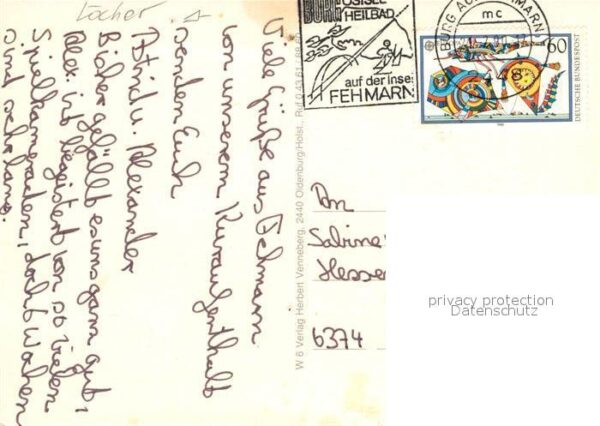 Löcher
Viele Grüße aus Fehmarn
von unserem Kuraufenthalt
senden Euch
Astrid u. Alexander
Bisher gefällt es uns ganz gut,
Alex. ist begeistert von so vielen
Spielkameraden, doch 6 Wochen
sind sehr lang.
W 6 Verlag Herbert Venneberg, 2440 Oldenburg/Holst., Ruf 0 43 61
BURG OSTSEE
HEILBAD
auf der Insel
FEHMARN
BURG AUF FEHMARN
mc
2448
60
DEUTSCHE BUNDESPOST
An
Sabine
Hesse
6374
privacy protection
Datenschutz